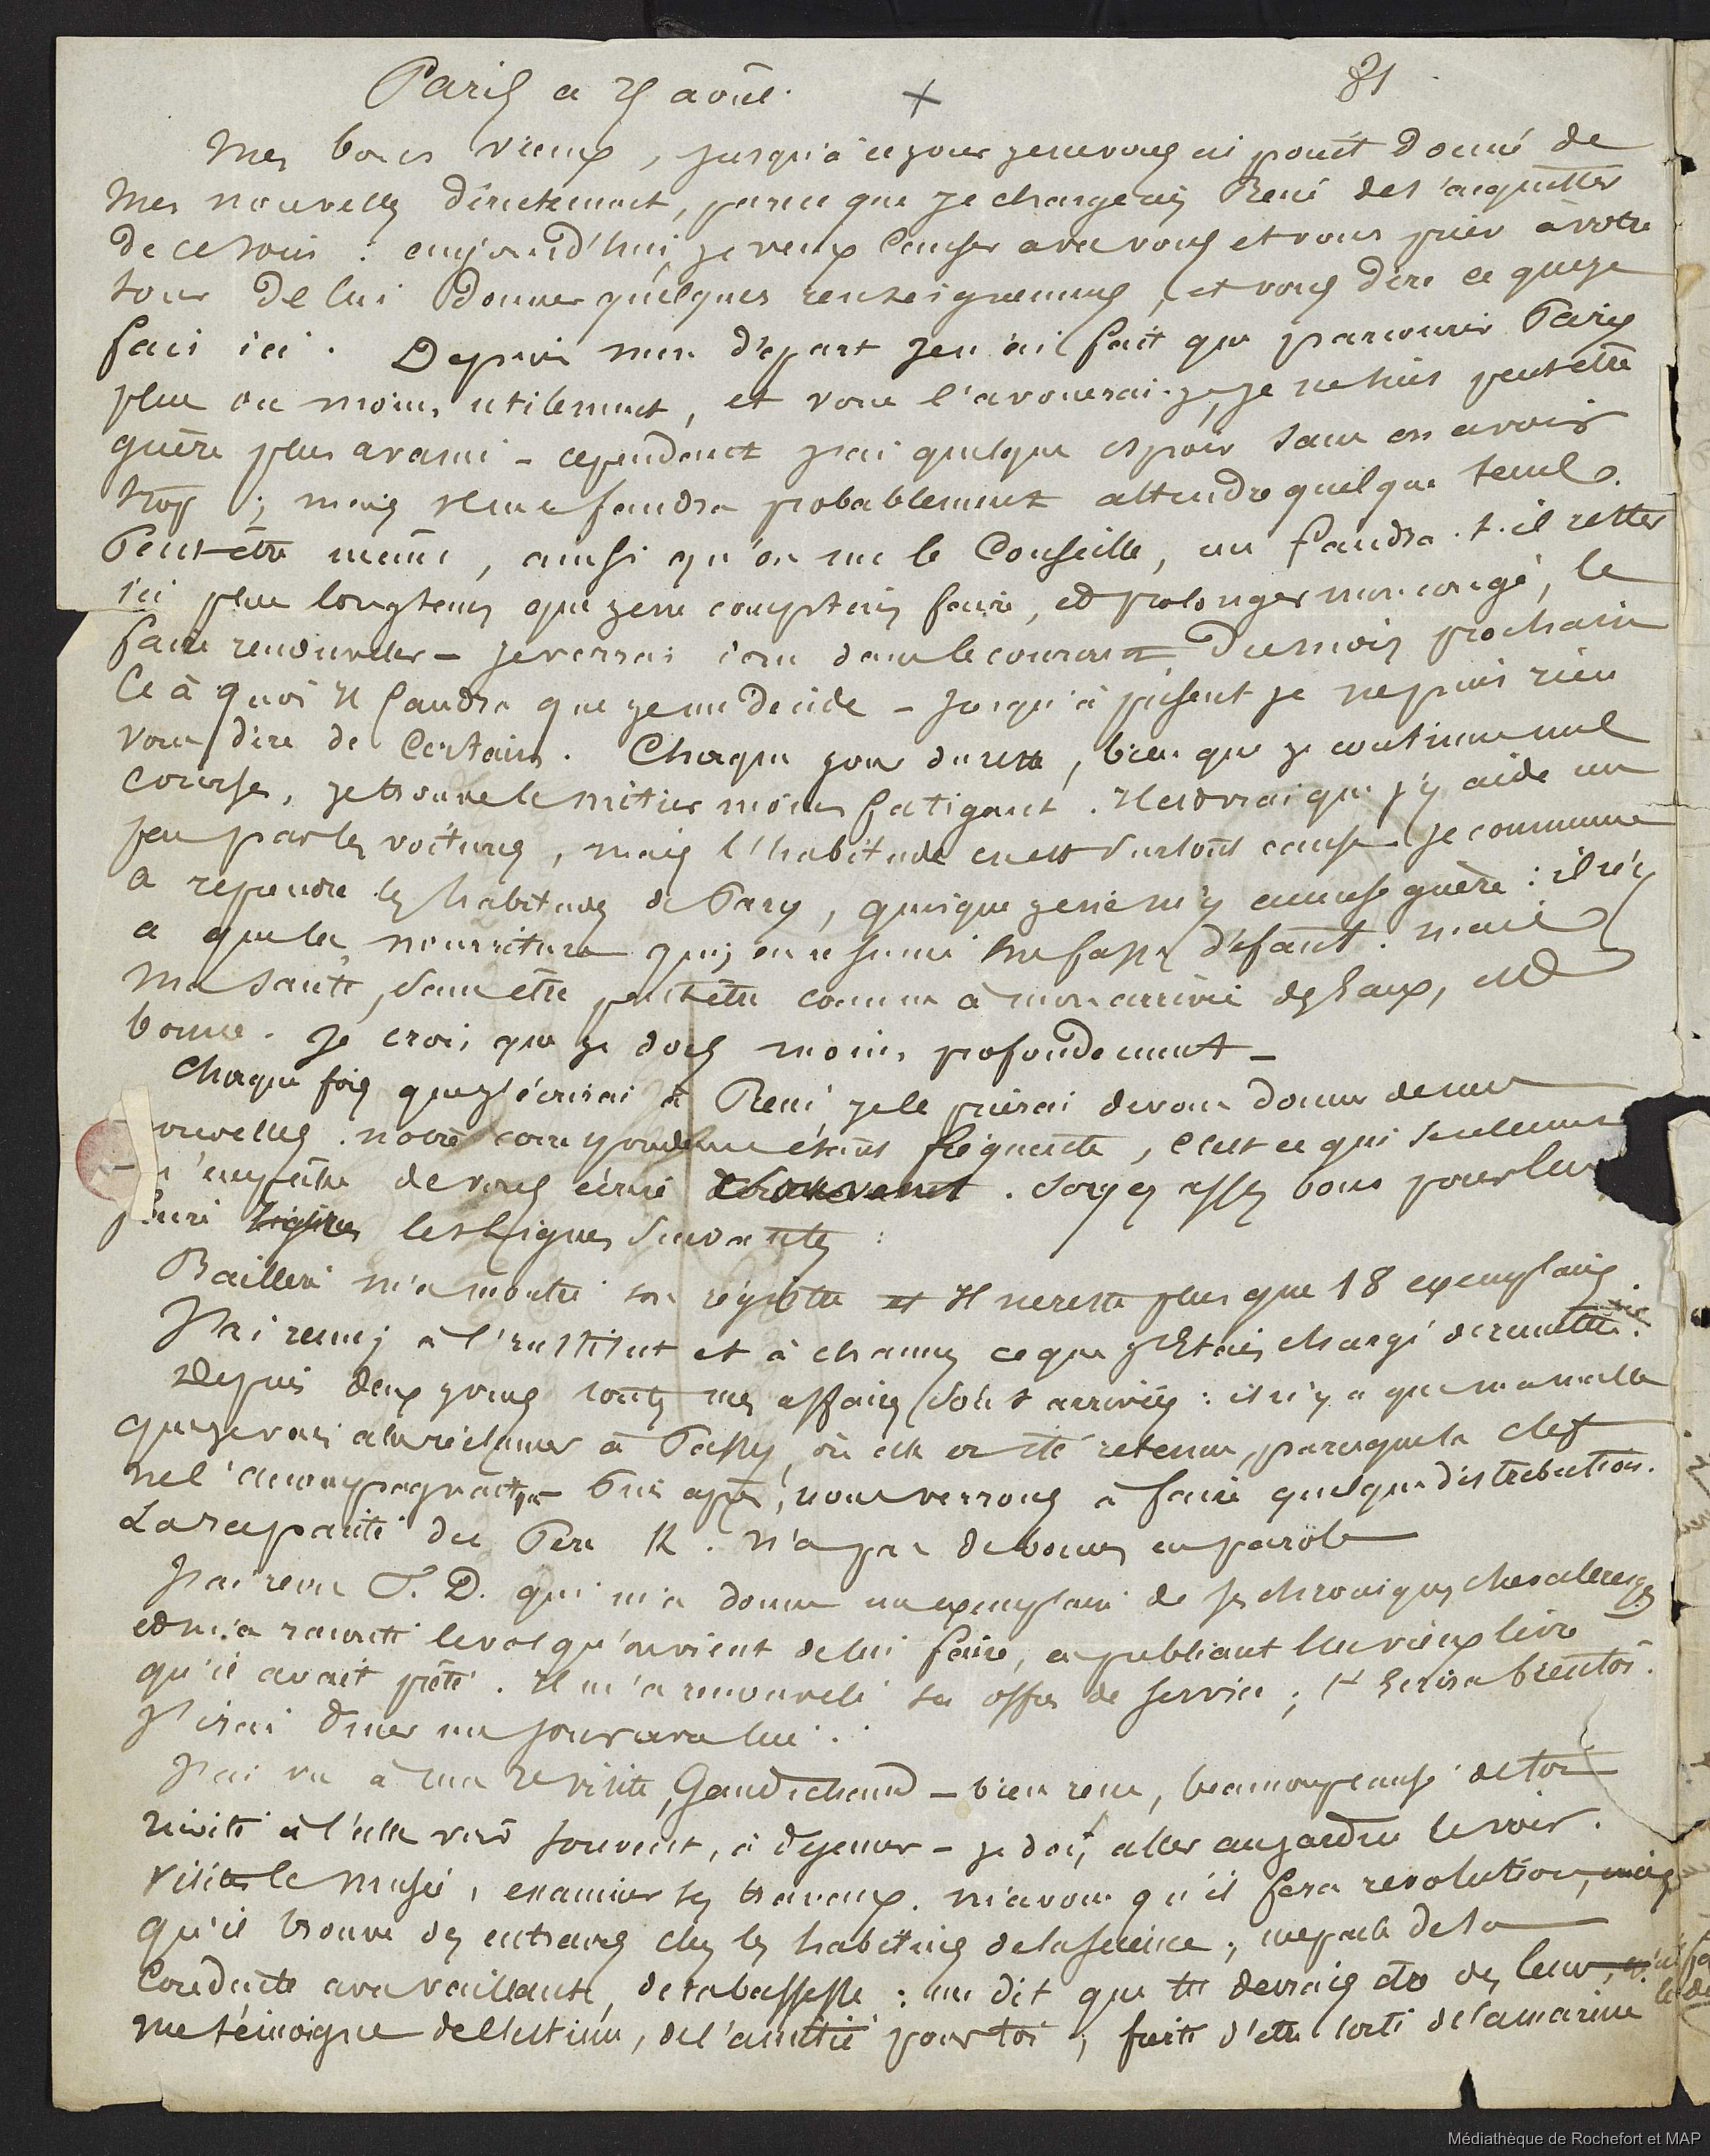 Paris ce 25 août.
81
Mes bons vieux, jusqu'à ce jour je ne vous ai point donné de
mes nouvelles directement, parce que je chargeais René de s'acquitter
de ce soin : aujourd'hui je veux causer avec vous et vous prier à votre
tour de lui donner quelques renseignemens, et vous dire ce que je
fais ici. Depuis mon départ je n'ai fait que parcourir Paris
plus ou moins utilement, et vous l'avouerai-je, je ne suis peut être
guère plus avancé - cependant j'ai quelque espoir sans en avoir
trop ; mais il me faudra probablement attendre quelque tems.
Peut-être même, ainsi qu'on me le conseille, me faudra-t-il rester
ici plus longtems que je ne comptais faire, et prolonger mon congé, le
faire renouveller - je verrai dans le courant du mois prochain
ce à quoi il faudra que je me décide - jusqu'à présent je ne puis rien
vous dire de certain. Chaque jour du reste, bien que je continue mes
courses, je trouve le métier moins fatigant. Il est vrai que j'y aide un
peu par les voitures, mais l'habitude en est surtout cause. Je commence
à reprendre les habitudes de Paris, quoique je ne m'y amuse guère : il n'y
a que la nourriture qui, en résumé me fasse défaut. mais
ma santé, sans être peut être comme à mon arrivée des Eaux, est
bonne. Je crois que je dors moins profondément -
Chaque fois que j'écrirai à René je le prierai de vous donner de mes
nouvelles. notre correspondance étant fréquente, c'est ce qui seulement
m'empêche de vous écrire . Soyez assez bons pour lui
lire les lignes suivantes :
Baillère m'a montré son registre et il ne reste plus que 18 exemplaires.
J'ai remis à l'institut et à chacun ce que j'étais chargé de remettre.
Depuis deux jours toutes mes affaires sont arrivées : il n'y a que ma malle
que je vais aller réclamer à Passy, où elle a été retenue, parce que la clef
ne l'accompagnait pas - Puis après, nous verrons à faire quelques distributions.
La rapacité du Père R. n'a pas de bornes
J'ai revu F. D. qui m'a donné un exemplaire de ses chroniques chevaleresques
et m'a raconté le vol qu'on vient de lui faire, en publiant un vieux livre
qu'il avait prêté. Il m'a renouvelé ses offres de service ; t'écrira bientôt.
J'irai diner un jour avec lui.
J'ai vu à ma 2e visite, Gaudichaud - bien reçu, beaucoup causé de toi
invité à l'aller voir souvent, à déjeuner - je dois aller au jardin le voir.
visiter le musée, examiner ses travaux. m'avoue qu'il fera révolution, mais
qu'il trouve des entraves chez les habitués de la science ; me parle de la
conduite avec vaillant, de sa bassesse ; me dit que tu devrais être des leurs,
me témoigne de l'estime, de l'amitié pour toi ; d'être sorti de la marine
Médiathèque de Rochefort et MAP